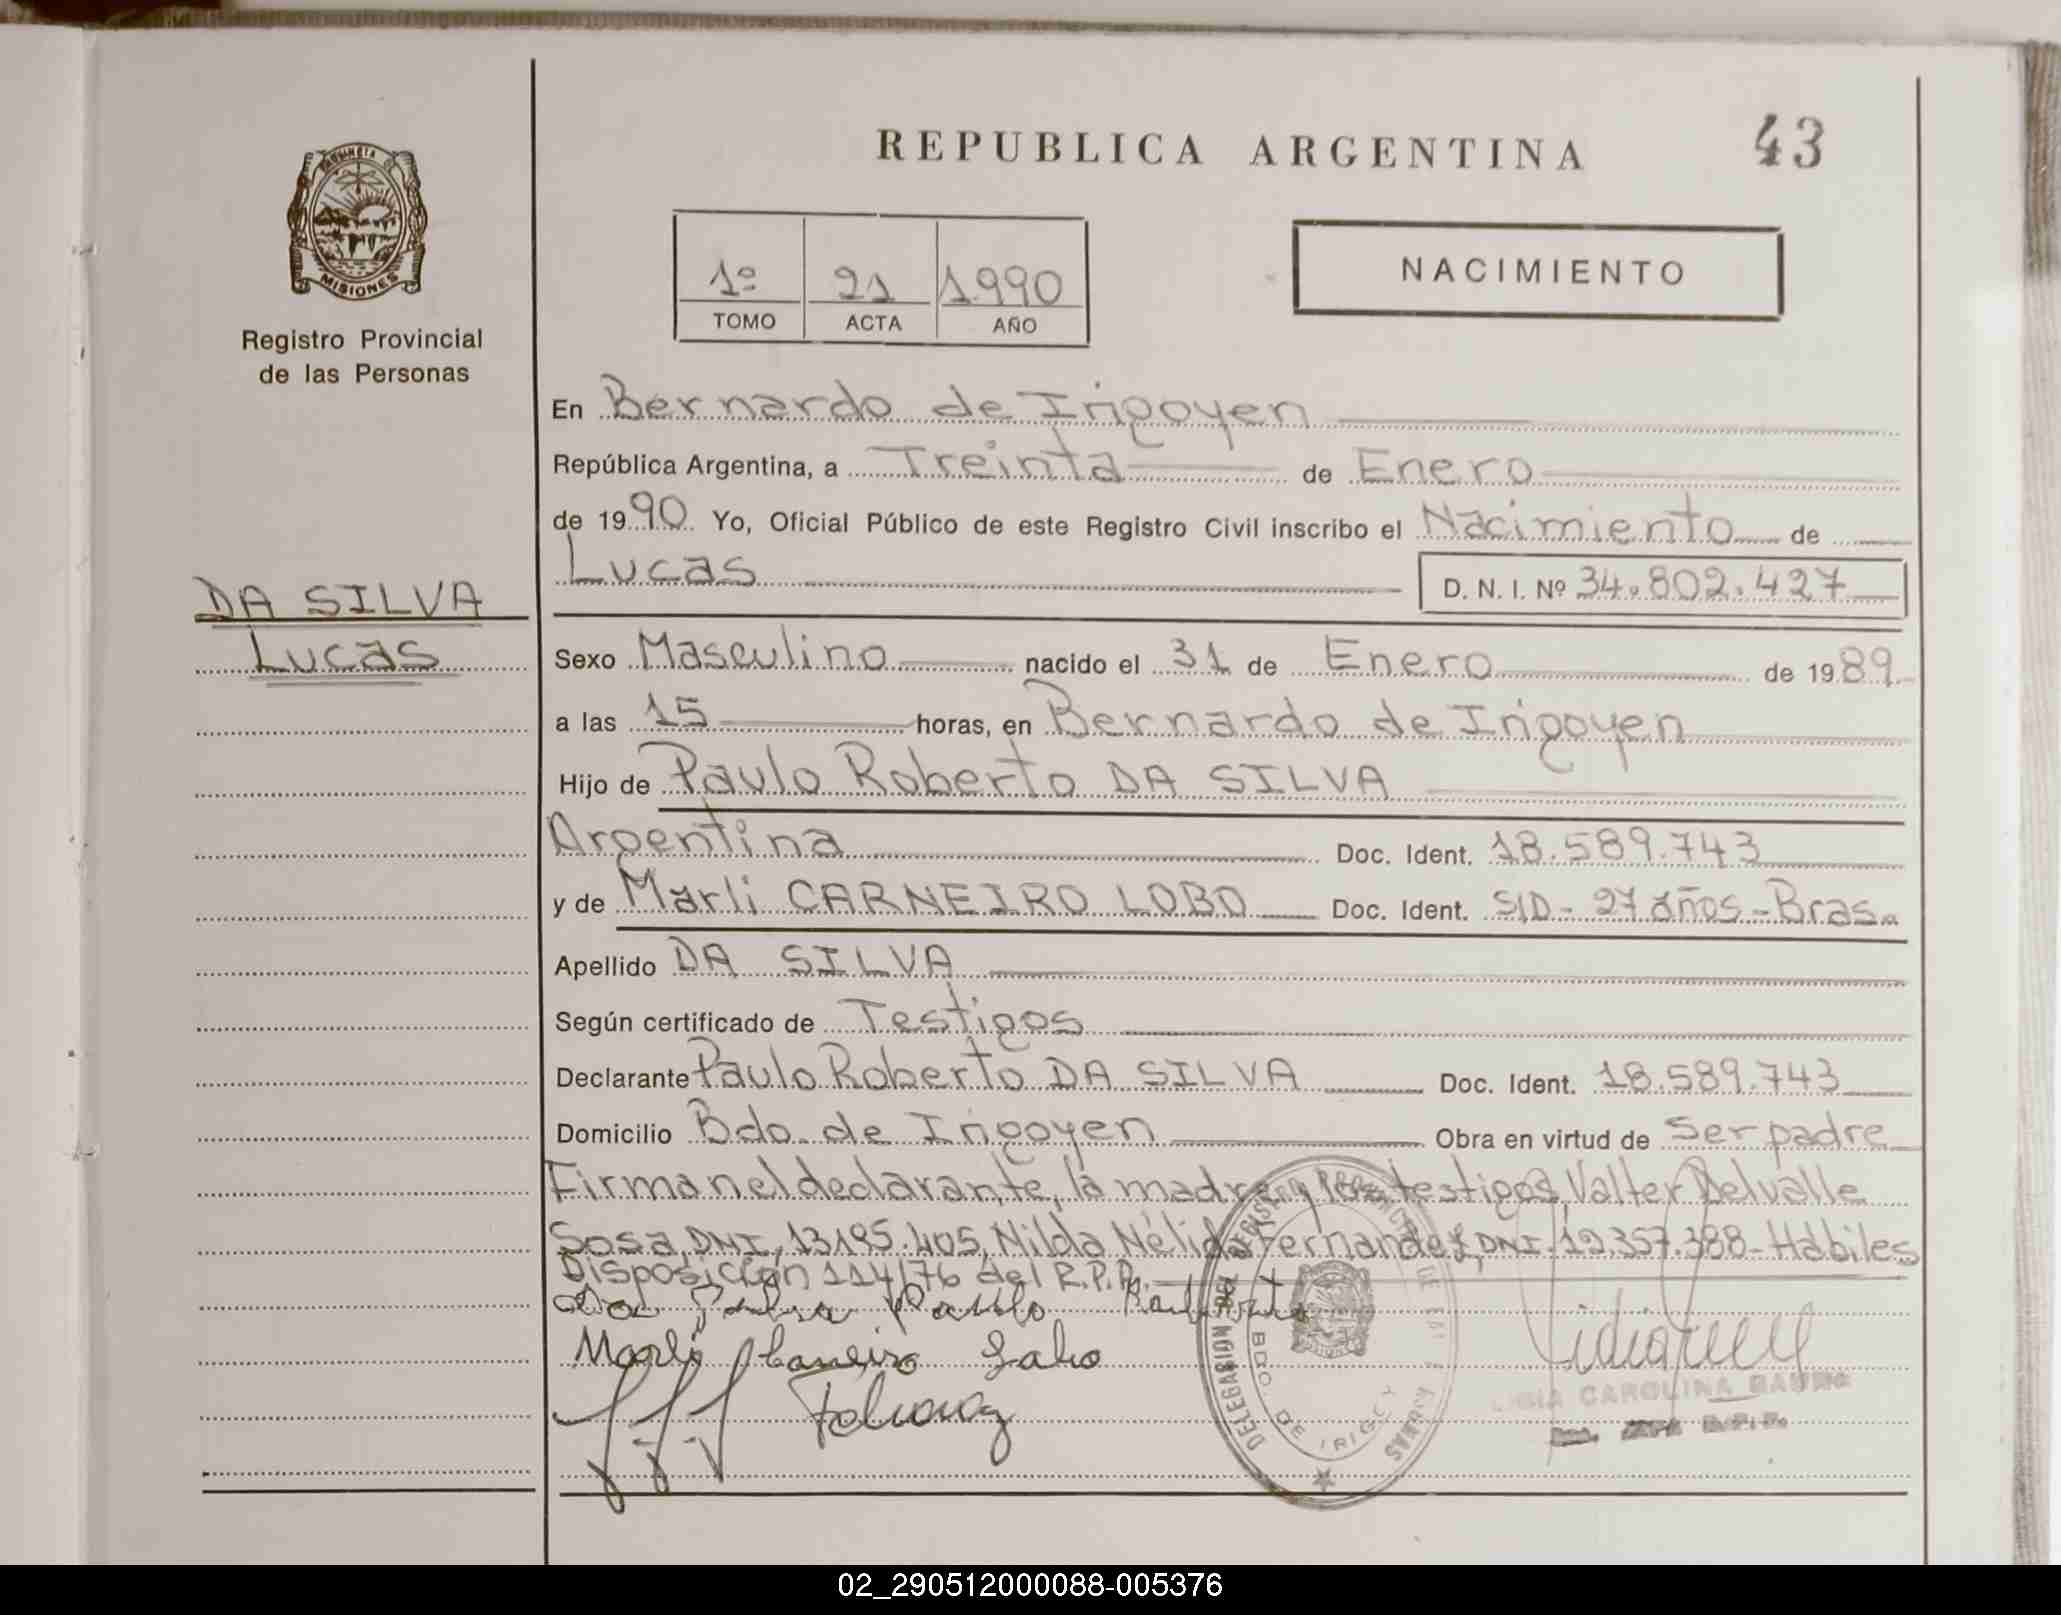 REPUBLICA ARGENTINA
43
PROVINCIA
MISIONES
Registro Provincial
de las Personas
1º 21 1990
TOMO ACTA AÑO
NACIMIENTO
DA SILVA
Lucas
En Bernardo de Irigoyen
República Argentina, a Treinta de Enero
de 1990 Yo, Oficial Público de este Registro Civil inscribo el Nacimiento de
Lucas D. N. I. Nº 34.802.427
Sexo Masculino nacido el 31 de Enero de 1989
a las 15 horas, en Bernardo de Irigoyen
Hijo de Paulo Roberto DA SILVA
Argentina Doc. Ident. 18.589.743
y de Marli CARNEIRO LOBO Doc. Ident. S/D - 27 años - Bras.
Apellido DA SILVA
Según certificado de Testigos
Declarante Paulo Roberto DA SILVA Doc. Ident. 18.589.743
Domicilio Bdo. de Irigoyen Obra en virtud de Ser padre
Firman el declarante, la madre y los testigos, Valter Delvalle
Sosa, DNI, 13195.405, Nilda Nélida Fernandez, DNI. 12.357.388 - Hábiles
Disposición 114/76 del R.P.P.
Da Silva Paulo Roberto
Marli Carneiro Lobo
DELEGACION DEL REGISTRO PROVINCIAL DE LAS PERSONAS
BDO. DE IRIGOYEN
CAROLINA
02_290512000088-005376